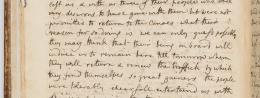 left us & with us three of their people who were
very desirous to have gone with them but were not
permitted to return to the Canoes what their
reason for so doing is we can only guess possibly
they may think that their being on board will
induce us to remain here tomorrow when they
will return & renew the traffick by which
they fond themselves so great gainers the people
were tolerably chearfull entertaind us with